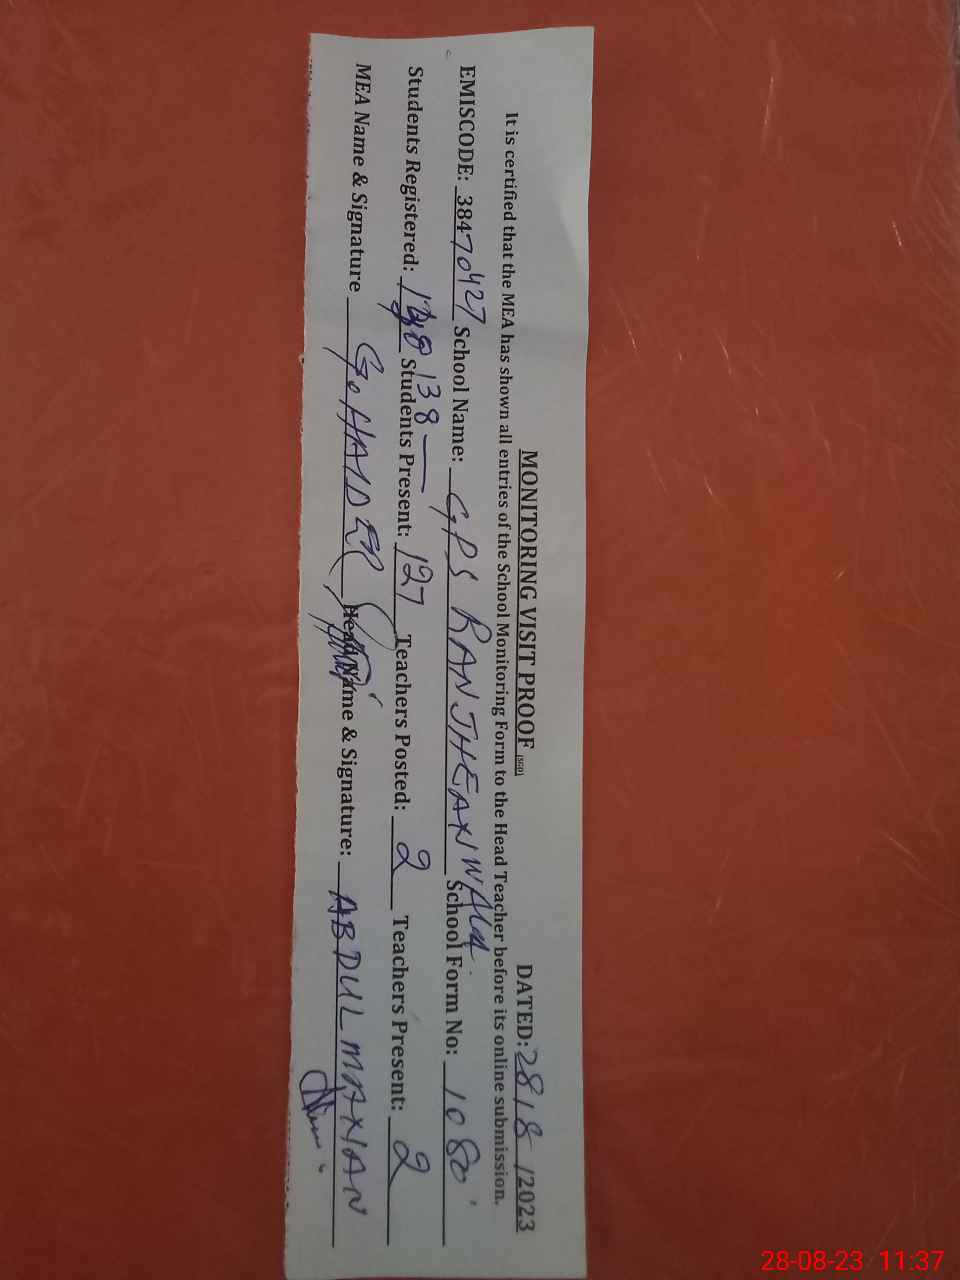 MONITORING VISIT PROOF (SGD) DATED: 28/8/2023
It is certified that the MEA has shown all entries of the School Monitoring Form to the Head Teacher before its online submission.
EMISCODE: 38470427 School Name: GPS RANJHEANWALA School Form No: 1080
Students Registered: 138 Students Present: 127 Teachers Posted: 2 Teachers Present: 2
MEA Name & Signature G. HAIDER Head Name & Signature: ABDUL MANAN
28-08-23 11:37